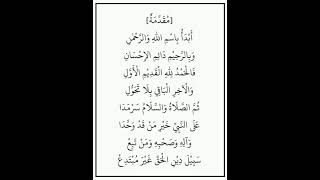 [مُقَدِّمَةٌ]
أَبْدَأُ بِاسْمِ اللهِ وَالرَّحْمٰنِ
وَبِالرَّحِيْمِ دَائِمِ الإِحْسَانِ
فَالْحَمْدُ لِلّٰهِ الْقَدِيْمِ الْأَوَّلِ
وَالْآخِرِ الْبَاقِيْ بِلَا تَحَوُّلِ
ثُمَّ الصَّلَاةُ وَالسَّلَامُ سَرْمَدَا
عَلَى النَّبِيِّ خَيْرِ مَنْ قَدْ وَحَّدَا
وَآلِهِ وَصَحْبِهِ وَمَنْ تَبِعْ
سَبِيْلَ دِيْنِ الْحَقِّ غَيْرَ مُبْتَدِعْ